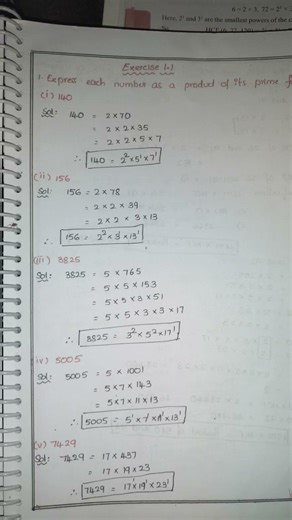 6 = 2 × 3, 72 = 2³ ×
Here, 2¹ and 3¹ are the smallest powers of the c
Exercise 1.1
1. Express each number as a product of its prime f
(i) 140
Sol: 140 = 2 × 70
= 2 × 2 × 35
= 2 × 2 × 5 × 7
∴ 140 = 2² × 5¹ × 7¹
(ii) 156
Sol: 156 = 2 × 78
= 2 × 2 × 39
= 2 × 2 × 3 × 13
∴ 156 = 2² × 3¹ × 13¹
(iii) 3825
Sol: 3825 = 5 × 765
= 5 × 5 × 153
= 5 × 5 × 3 × 51
= 5 × 5 × 3 × 3 × 17
∴ 3825 = 3² × 5² × 17¹
(iv) 5005
Sol: 5005 = 5 × 1001
= 5 × 7 × 143
= 5 × 7 × 11 × 13
∴ 5005 = 5¹ × 7¹ × 11¹ × 13¹
(v) 7429
Sol: 7429 = 17 × 437
= 17 × 19 × 23
∴ 7429 = 17¹ × 19¹ × 23¹